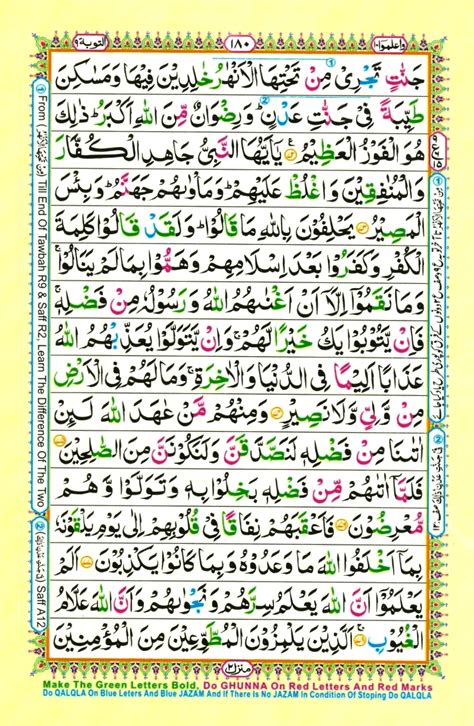 واعلموا ١٠
١٨٠
التوبة ٩
جَنّٰتٍ تَجْرِیْ مِنْ تَحْتِهَا الْاَنْهٰرُ خٰلِدِیْنَ فِیْهَا وَمَسٰكِنَ
طَیِّبَةً فِیْ جَنّٰتِ عَدْنٍ ؕ وَرِضْوَانٌ مِّنَ اللّٰهِ اَكْبَرُ ؕ ذٰلِكَ
هُوَ الْفَوْزُ الْعَظِیْمُ ۟ یٰۤاَیُّهَا النَّبِیُّ جَاهِدِ الْكُفَّارَ
وَالْمُنٰفِقِیْنَ وَاغْلُظْ عَلَیْهِمْ ؕ وَمَاْوٰىهُمْ جَهَنَّمُ ؕ وَبِئْسَ
الْمَصِیْرُ ۟ یَحْلِفُوْنَ بِاللّٰهِ مَا قَالُوْا ؕ وَلَقَدْ قَالُوْا كَلِمَةَ
الْكُفْرِ وَكَفَرُوْا بَعْدَ اِسْلَامِهِمْ وَهَمُّوْا بِمَا لَمْ یَنَالُوْا ۚ
وَمَا نَقَمُوْۤا اِلَّاۤ اَنْ اَغْنٰىهُمُ اللّٰهُ وَرَسُوْلُهٗ مِنْ فَضْلِهٖ ۚ
فَاِنْ یَّتُوْبُوْا یَكُ خَیْرًا لَّهُمْ ۚ وَاِنْ یَّتَوَلَّوْا یُعَذِّبْهُمُ اللّٰهُ
عَذَابًا اَلِیْمًا فِی الدُّنْیَا وَالْاٰخِرَةِ ۚ وَمَا لَهُمْ فِی الْاَرْضِ
مِنْ وَّلِیٍّ وَّلَا نَصِیْرٍ ۟ وَمِنْهُمْ مَّنْ عٰهَدَ اللّٰهَ لَىِٕنْ
اٰتٰىنَا مِنْ فَضْلِهٖ لَنَصَّدَّقَنَّ وَلَنَكُوْنَنَّ مِنَ الصّٰلِحِیْنَ ۟
فَلَمَّاۤ اٰتٰىهُمْ مِّنْ فَضْلِهٖ بَخِلُوْا بِهٖ وَتَوَلَّوْا وَّهُمْ
مُّعْرِضُوْنَ ۟ فَاَعْقَبَهُمْ نِفَاقًا فِیْ قُلُوْبِهِمْ اِلٰی یَوْمِ یَلْقَوْنَهٗ
بِمَاۤ اَخْلَفُوا اللّٰهَ مَا وَعَدُوْهُ وَبِمَا كَانُوْا یَكْذِبُوْنَ ۟ اَلَمْ
یَعْلَمُوْۤا اَنَّ اللّٰهَ یَعْلَمُ سِرَّهُمْ وَنَجْوٰىهُمْ وَاَنَّ اللّٰهَ عَلَّامُ
الْغُیُوْبِ ۟ اَلَّذِیْنَ یَلْمِزُوْنَ الْمُطَّوِّعِیْنَ مِنَ الْمُؤْمِنِیْنَ
منزل ٢
① From (مِنْ تَحْتِهَا الْاَنْهٰرُ) Till End Of Tawbah R9 & Saff R2, Learn The Difference Of The Two
② (فِیْ جَنّٰتِ عَدْنٍ ذٰلِكَ) Saff A12
Make The Green Letters Bold, Do GHUNNA On Red Letters And Red Marks
Do QALQLA On Blue Leters And Blue JAZAM And If There Is No JAZAM In Condition Of Stoping Do QALQLA